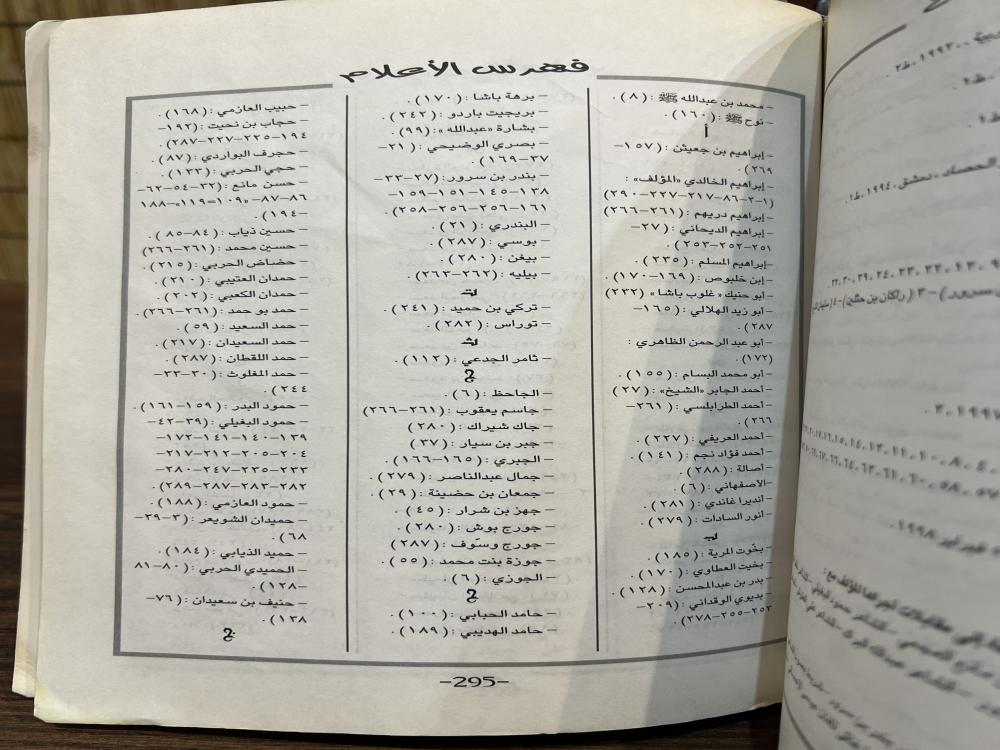 فهرس الأعلام
– محمد بن عبدالله ﷺ : (٨) .
– نوح ﷺ : (١٦٠) .
أ
– إبراهيم بن جعيثن : (١٥٧–
٢٦٩) .
– إبراهيم الخالدي «المؤلف» :
(١–٢–٨٦–٢١٧–٢٢٧–٢٩٠)
– إبراهيم دريهم : (٢٦١–٢٦٦)
– إبراهيم الديحاني : (٢٧–
٢٥١–٢٥٢–٢٥٣) .
– إبراهيم المسلم : (٢٣٥) .
– إبن خلبوص : (١٦٩–١٧٠) .
– أبو حنيك «غلوب باشا» (٢٣٢)
– أبو زيد الهلالي : (١٦٥–
٢٨٧) .
– أبو عبد الرحمن الظاهري :
(١٧٢) .
– أبو محمد البسام : (١٥٥) .
– أحمد الجابر «الشيخ» : (٢٧)
– أحمد الطرابلسي : (٢٦١–
٢٦٦) .
– أحمد العريفي : (٢٢٧) .
– أحمد فؤاد نجم : (١٤١) .
– أصالة : (٢٨٨) .
– الأصفهاني : (٦) .
– أنديرا غاندي : (٢٨١) .
– أنور السادات : (٢٧٩) .
ب
– بخوت المرية : (١٨٥) .
– بخيت العطاوي : (١٧٠) .
– بدر بن عبدالمحسن : (١٢٨) .
– بديوي الوقداني : (٢٠٩–
٢٥٣–٢٥٥–٢٧٨) .
– برهة باشا : (١٧٠) .
– بريجيت باردو : (٢٤٢) .
– بشارة «عبدالله» : (٩٩) .
– بصري الوضيحي : (٢١–
٣٧–١٦٩) .
– بندر بن سرور : (٢٧–٣٣–
١٣٨–١٤٥–١٥١–١٥٩–
١٦١–٢٥٦–٢٥٦–٢٥٨) .
– البندري : (٢١) .
– بوسي : (٢٨٧) .
– بيغن : (٢٨٠) .
– بيليه : (٢٦٢–٢٦٣) .
ت
– تركي بن حميد : (٢٤١) .
– توراس : (٢٨٢) .
ث
– ثامر الجدعي : (١١٢) .
ج
– الجاحظ : (٦) .
– جاسم يعقوب : (٢٦١–٢٦٦)
– جاك شيراك : (٢٨٠)
– جبر بن سيار : (٣٧)
– الجبري : (١٦٥–١٦٦) .
– جمال عبدالناصر : (٢٧٩) .
– جمعان بن حضينة : (٢٩) .
– جهز بن شرار : (٤٥) .
– جورج بوش : (٢٨٠) .
– جورج وسّوف : (٢٨٧)
– جوزة بنت محمد : (٥٥) .
– الجوزي : (٦) .
ح
– حامد الحبابي : (١٠٠) .
– حامد الهديبي : (١٨٩) .
– حبيب العازمي : (١٦٨) .
– حجاب بن نحيت : (١٩٢–
١٩٤–٢٢٥–٢٢٧–٢٨٧) .
– حجرف البواردي : (٨٧) .
– حجي الحربي : (١٢٣) .
– حسن مانع : (٣٢–٥٤–٦٢–
٨٦–٨٧–«١٠٩–١١٩»–١٨٨
–١٩٤) .
– حسين ذياب : (٨٤–٨٥) .
– حسين محمد : (٢٦١–٢٦٦)
– حضاض الحربي : (٢١٥) .
– حمدان العتيبي : (٢١٠) .
– حمدان الكعبي : (٢٠٢) .
– حمد بو حمد : (٢٦١–٢٦٦) .
– حمد السعيد : (٥٩) .
– حمد السعيدان : (٢١٧) .
– حمد اللقطان : (٢٨٧) .
– حمد المغلوث : (٣٠–٣٣–
٢٤٤) .
– حمود البدر : (١٥٩–١٦١) .
– حمود البغيلي : (٣٩–٤٢–
١٣٩–١٤٠–١٤١–١٧٢–
٢٠٤–٢٠٥–٢١٢–٢١٧–
٢٣٣–٢٣٥–٢٤٧–٢٨٠–
٢٨٢–٢٨٣–٢٨٧–٢٨٩) .
– حمود العازمي : (١٨٨) .
– حميدان الشويعر : (٣–٣٩–
٦٨) .
– حميد الذيابي : (١٨٤) .
– الحميدي الحربي : (٨٠–٨١
–١٢٨) .
– حنيف بن سعيدان : (٧٦–
١٣٨) .
خ
-295-